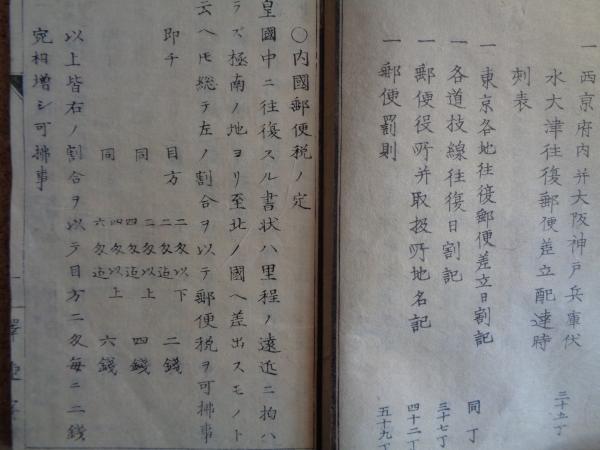 一 西京府内并大阪神戸兵庫伏
水大津往復郵便差立配達時
刺表 三十五丁
一 東京各地往復郵便差立日割記 同丁
一 各道技線往復日割記 三十七丁
一 郵便役所并取扱所地名記 四十二丁
一 郵便罰則 五十九丁
〇内國郵便税ノ定
皇國中ニ往復スル書状ハ里程ノ遠近ニ拘ハ
ラズ極南ノ地ヨリ至北ノ國ヘ差出スモノト
云ヘ𪜈総テ左ノ割合ヲ以テ郵便税ヲ可拂事
即チ 目方 二匁以下 二錢
同 二匁以上 四匁迄 四錢
同 四匁以上 六匁迄 六錢
以上皆右ノ割合ヲ以テ目方二匁毎ニ二錢
宛相増シ可拂事